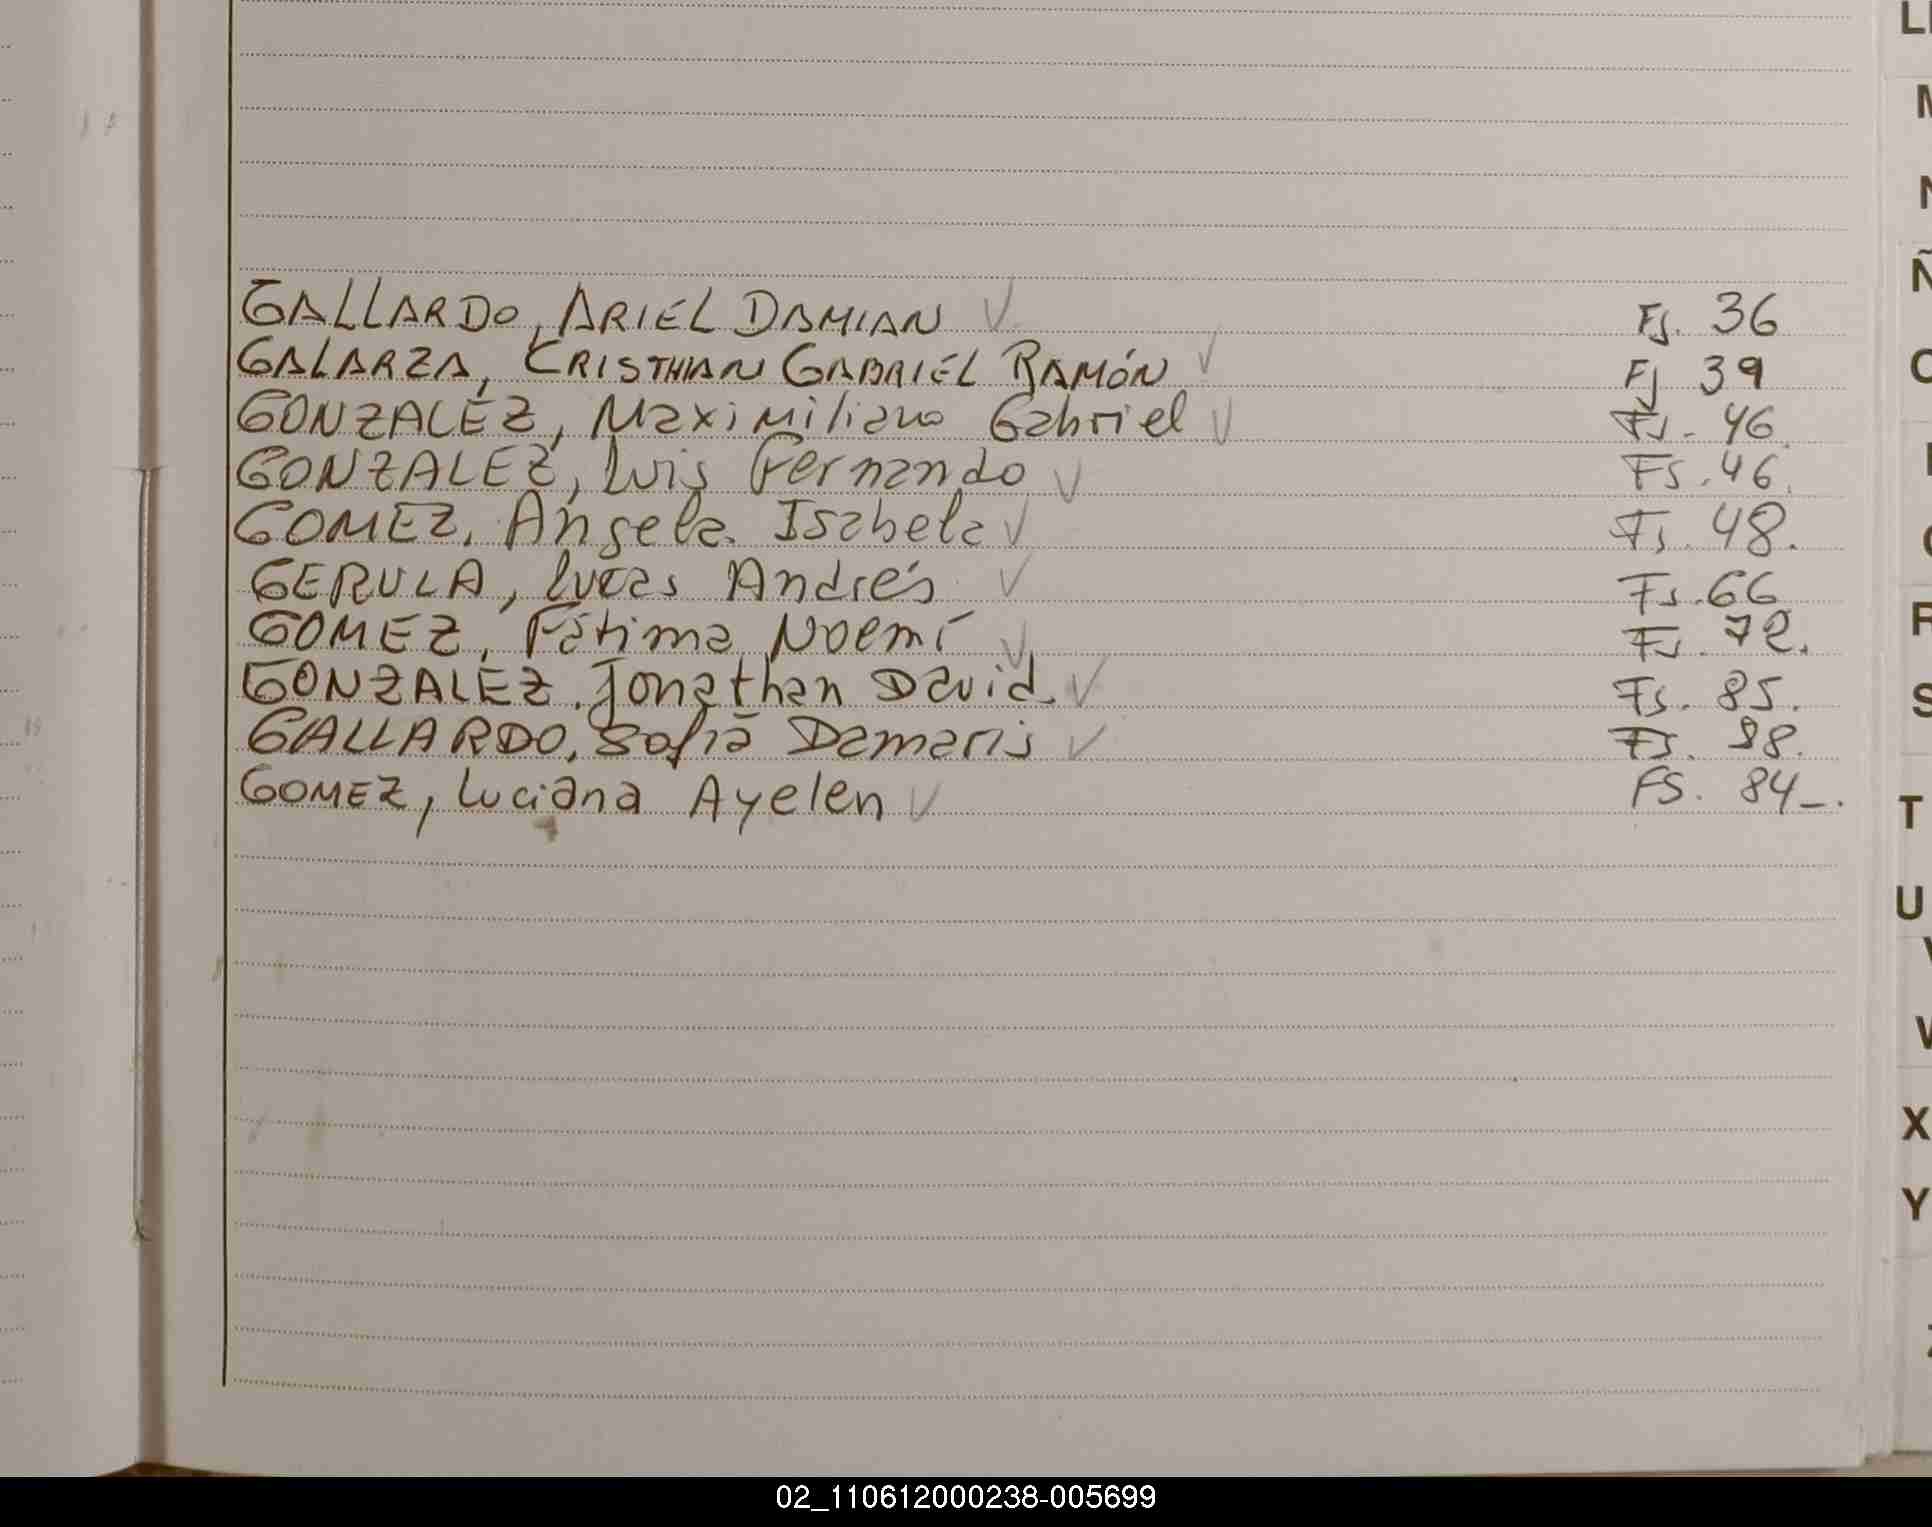 GALLARDO, ARIEL DAMIAN √ Fs. 36
GALARZA, CRISTHIAN GABRIEL RAMÓN √ Fj 39
GONZALEZ, Maximiliano Gabriel √ Fs. 46.
GONZALEZ, Luis Fernando √ Fs. 46.
GOMEZ, Angela Isabela √ Fs. 48.
GERULA, Lucas Andrés √ Fs. 66
GOMEZ, Fátima Noemí √ Fs. 72.
GONZALEZ, Jonathan David √ Fs. 85.
GALLARDO, Sofia Damaris √ Fs. 98.
GOMEZ, Luciana Ayelen √ FS. 84_.
Ñ
R
S
T
U
X
Y
02_110612000238-005699